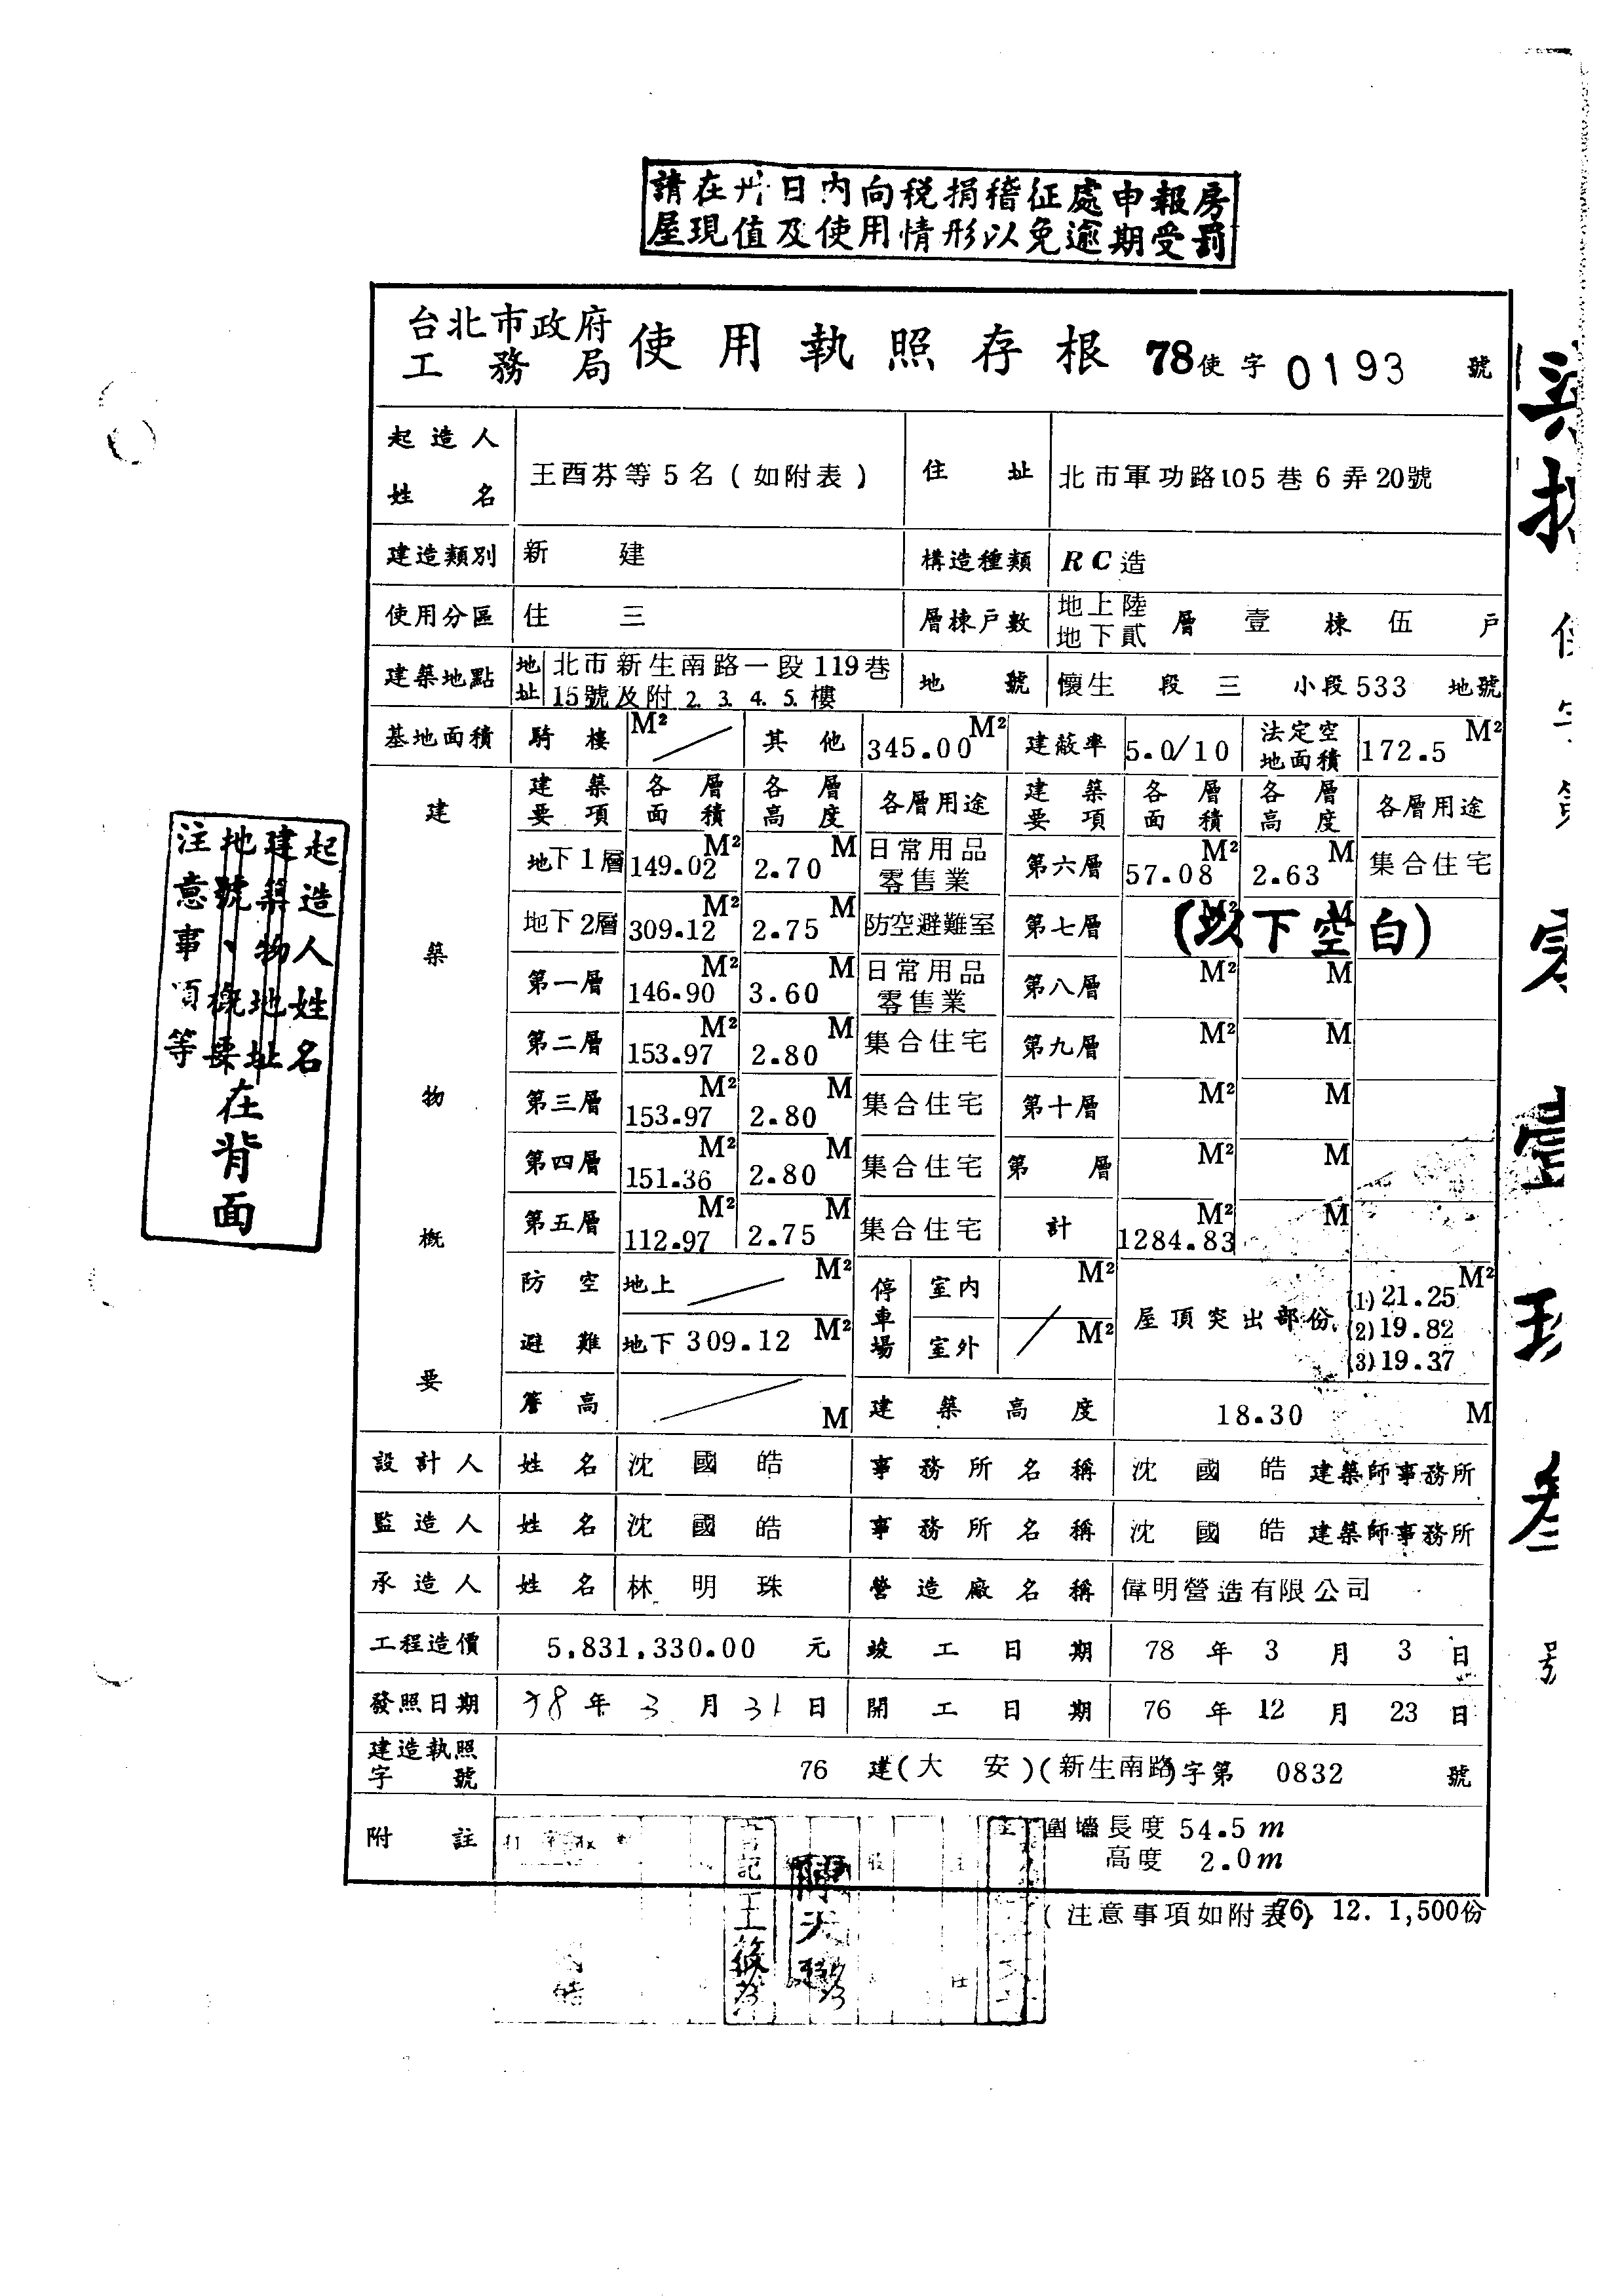 請在卅日內向稅捐稽征處申報房
屋現值及使用情形以免逾期受罰
台北市政府
工務局 使用執照存根 78使字 0193 號
起造人姓名 王酉芬等5名(如附表) 住址 北市軍功路105巷6弄20號
建造類別 新建 構造種類 RC造
使用分區 住三 層棟戶數 地上陸 地下貳 層壹棟伍戶
建築地點 地址 北市新生南路一段119巷 15號及附2.3.4.5.樓 地號 懷生段三小段533地號
基地面積 騎樓 M² 其他 345.00 M² 建蔽率 5.0/10 法定空地面積 172.5 M²
建築物概要
建築要項 各層面積 各層高度 各層用途 建築要項 各層面積 各層高度 各層用途
地下1層 149.02 M² 2.70 M 日常用品零售業 第六層 57.08 M² 2.63 M 集合住宅
地下2層 309.12 M² 2.75 M 防空避難室 第七層 M² M (以下空白)
第一層 146.90 M² 3.60 M 日常用品零售業 第八層 M² M
第二層 153.97 M² 2.80 M 集合住宅 第九層 M² M
第三層 153.97 M² 2.80 M 集合住宅 第十層 M² M
第四層 151.36 M² 2.80 M 集合住宅 第 層 M² M
第五層 112.97 M² 2.75 M 集合住宅 計 1284.83 M² M
防空避難 地上 M² 停車場 室內 M² 屋頂突出部份 (1)21.25 M²
地下 309.12 M² 室外 M² (2)19.82
(3)19.37
簷高 M 建築高度 18.30 M
設計人 姓名 沈國皓 事務所名稱 沈國皓建築師事務所
監造人 姓名 沈國皓 事務所名稱 沈國皓建築師事務所
承造人 姓名 林明珠 營造廠名稱 偉明營造有限公司
工程造價 5,831,330.00 元 竣工日期 78年3月3日
發照日期 78年3月31日 開工日期 76年12月23日
建造執照字號 76建(大安)(新生南路)字第 0832 號
附註 圍墻長度 54.5m
高度 2.0m
(注意事項如附表) 76. 12. 1,500份
起造人姓名
建築物地址
地號、概要
注意事項等
在背面